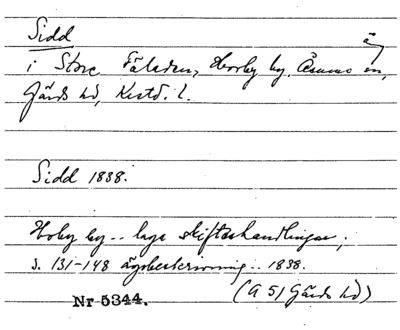 Sidd
äg
i Store Fäladen, Horby by, Åsums sn,
Gärds hd, Kristd. l.
Sidd 1838.
Hoby by.. laga skifteshandlingar,
s. 131-148 ägobeskrivning.. 1838.
Nr 5344. (A 51 Gärds hd)